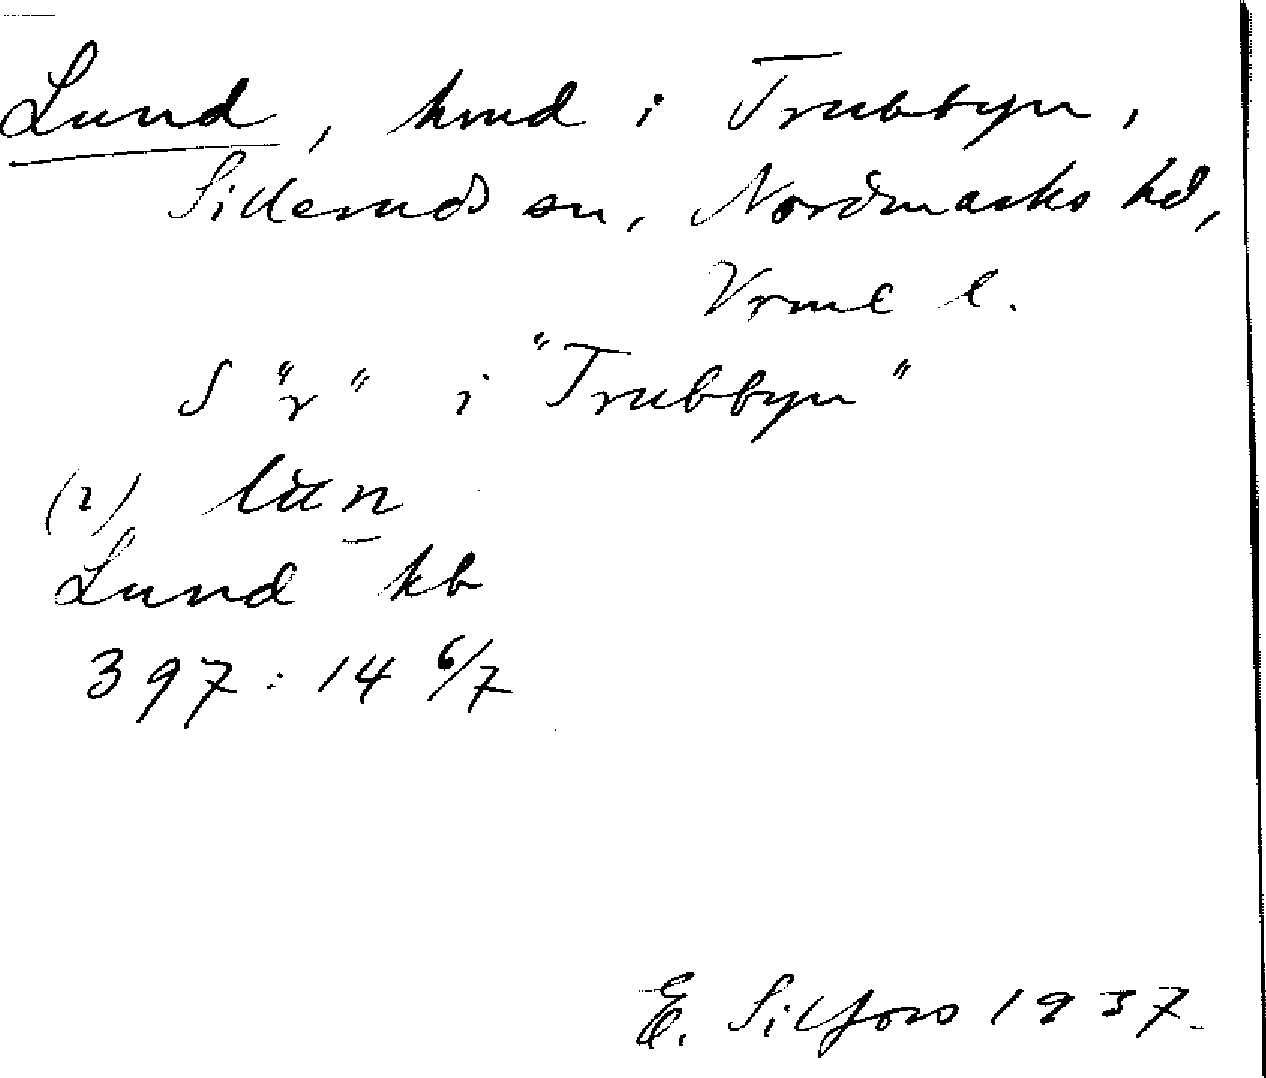 Lund, hmd i Trubbyn,
Silleruds sn, Nordmarks hd,
Vrml l.
S "r" i "Trubbyn"
(2) lun
Lund kb
397: 14 6/7
E. Silfors 1937.